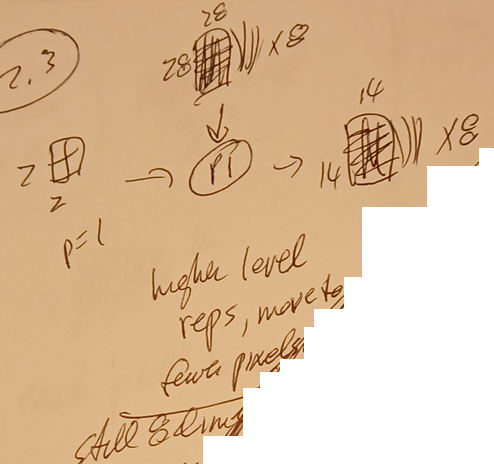 2.3
28
28 x 8
2
2
p=1
P1
14
14 x 8
higher level
reps, move to
fewer pixels
still 8 dims